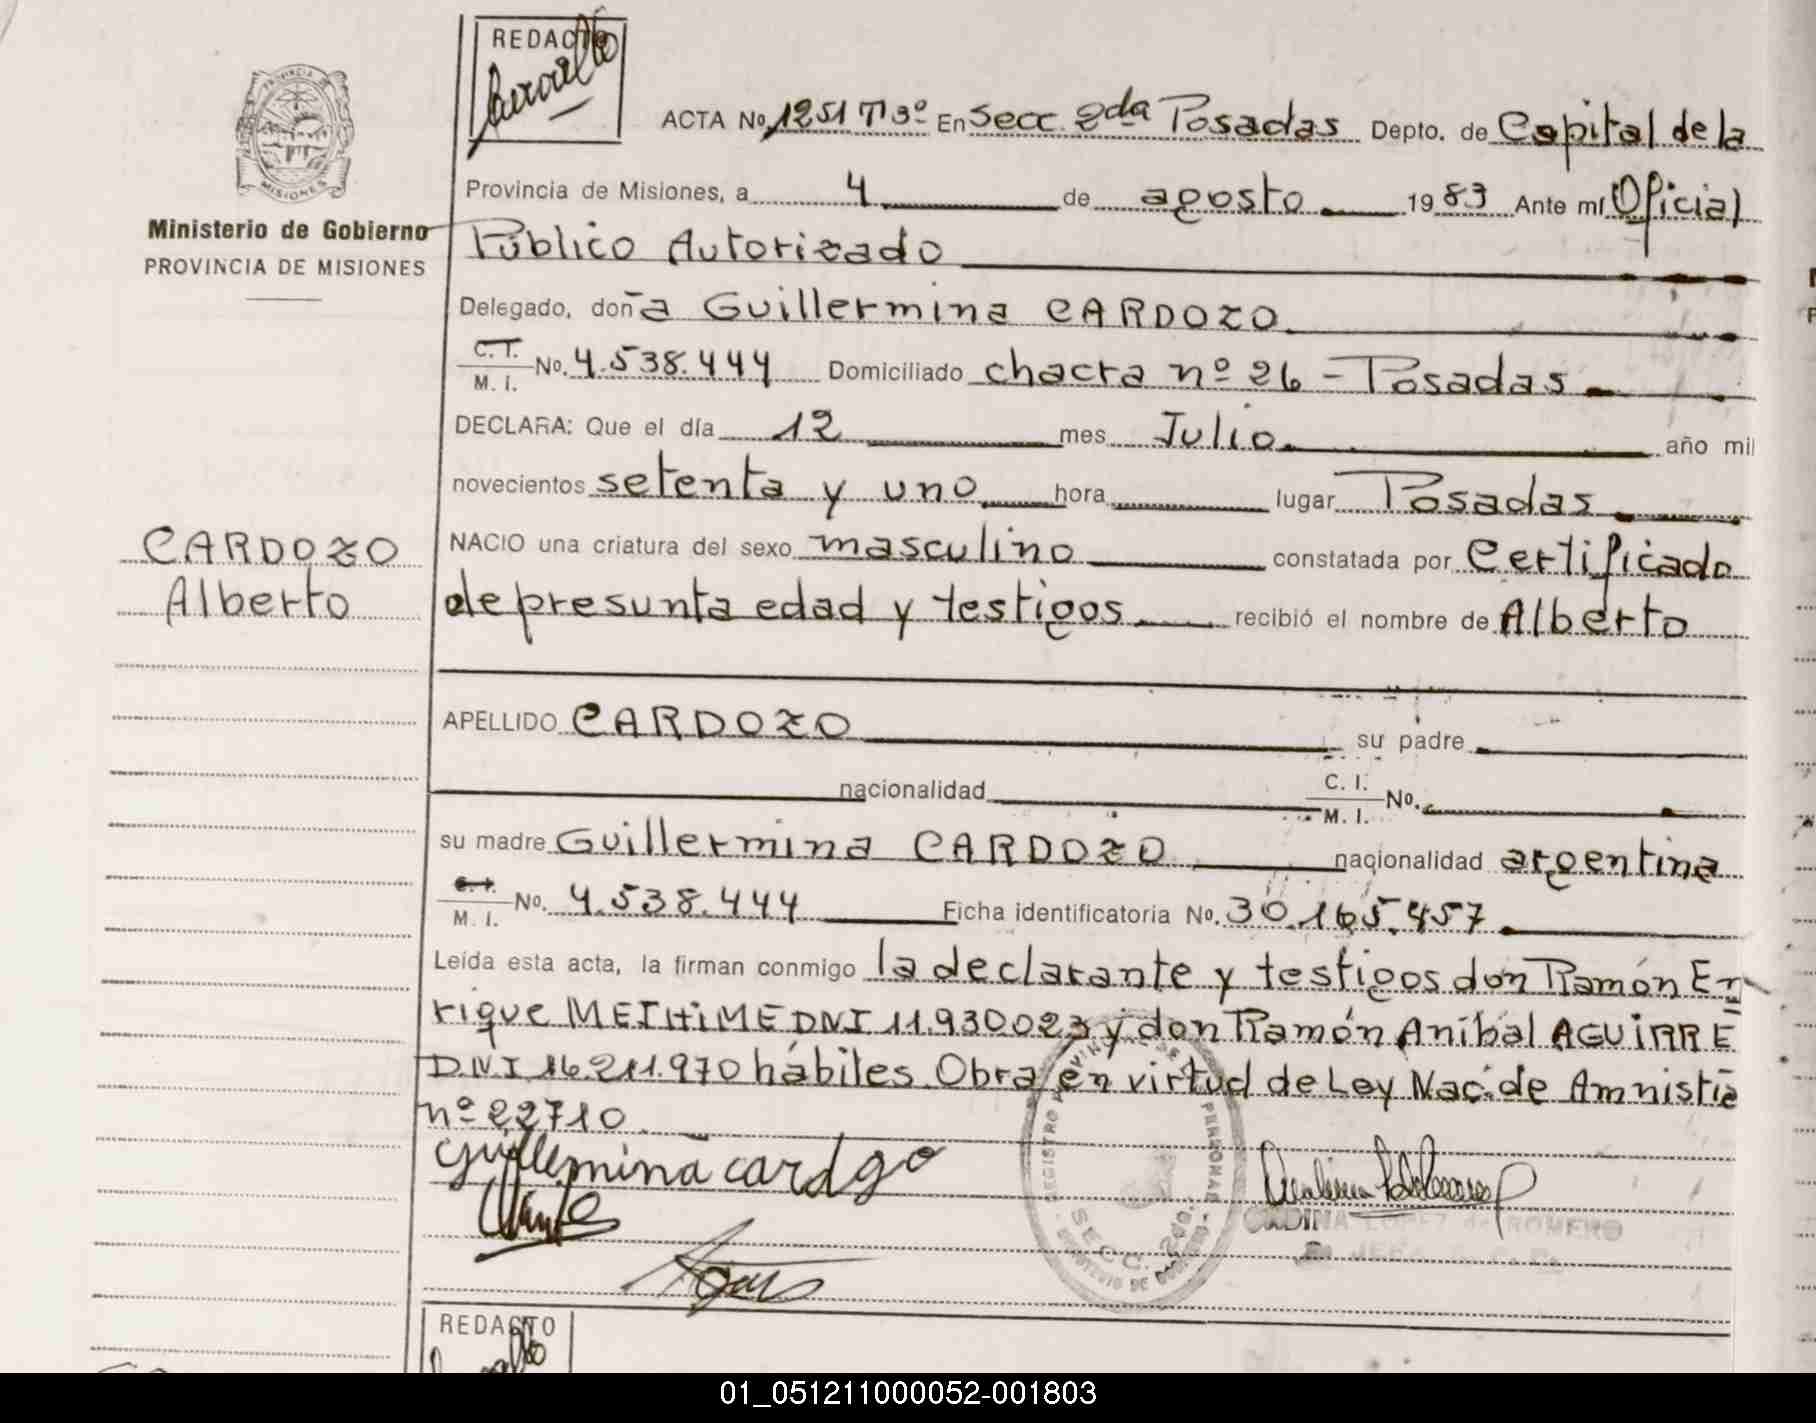 REDACTO
ACTA No. 1251 Tº 3º En Secc. 2da Posadas Depto. de Capital de la
Provincia de Misiones, a 4 de agosto 1983 Ante mí Oficial
Ministerio de Gobierno
PROVINCIA DE MISIONES
Público Autorizado
Delegado, doña Guillermina CARDOZO
C.I. M. I. No. 4.538.444 Domiciliado chacra nº 26 - Posadas
DECLARA: Que el día 12 mes Julio año mil
novecientos setenta y uno hora lugar Posadas
CARDOZO
Alberto
NACIO una criatura del sexo masculino constatada por Certificado
de presunta edad y testigos recibió el nombre de Alberto
APELLIDO CARDOZO su padre
nacionalidad C. I. M. I. No.
su madre Guillermina CARDOZO nacionalidad argentina
C. I. M. I. No. 4.538.444 Ficha identificatoria No. 30.165.457
Leída esta acta, la firman conmigo la declarante y testigos don Ramón En-
rique MEIHiME DNI 11.930023 y don Ramón Aníbal AGUiRRE
D.N.I 16.211.970 hábiles. Obra en virtud de Ley Nac. de Amnistia
nº 22710.
Guillermina cardozo
REGISTRO PROVINCIAL DE PERSONAS
SECC. 2da.
LOPEZ de ROMERO
REDACTO
01_051211000052-001803